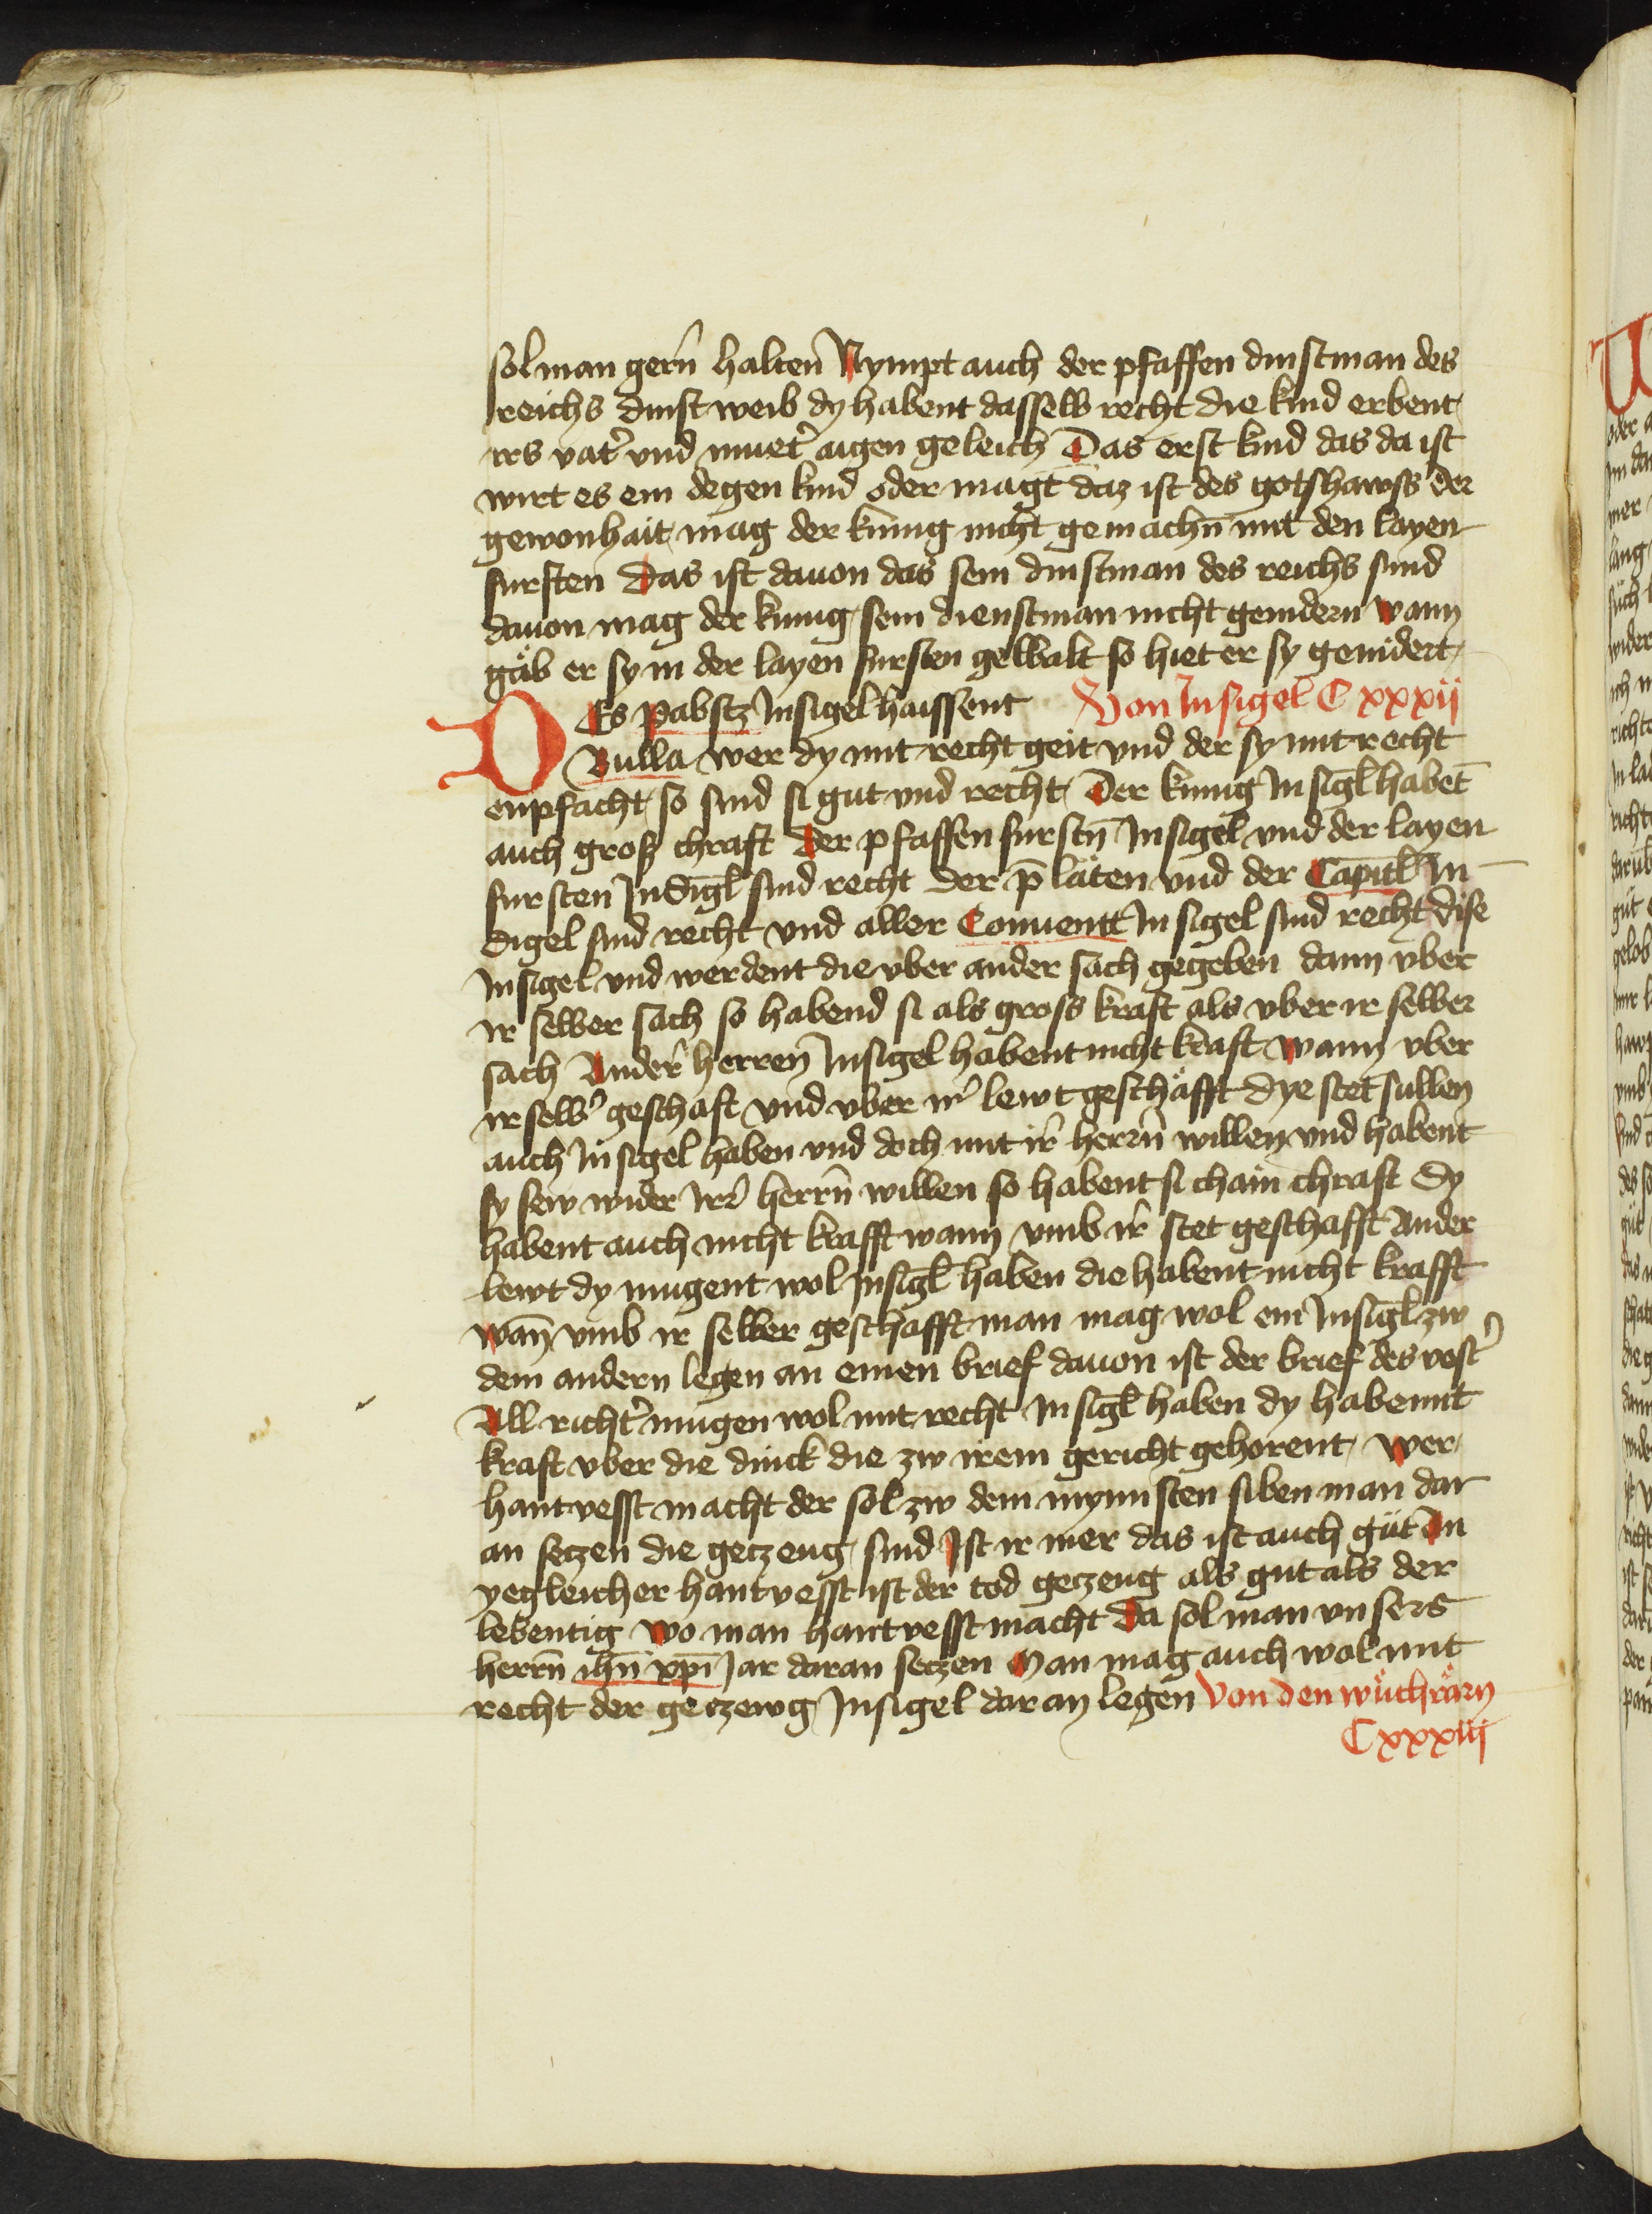 sol man gern̄ halten̄ Nympt auch der pfaffen dinstman des
reichs dinst weib dy habent dasselb recht die kind erbent
irs vat̓ vnd muet̓ aigen geleich Das erst kind das da ist
wirt es ein degen kind oder magt daz ist des gotshawss der
gewonhait mag der kunig nicht gemachn̄ mit den layen
fursten Das ist dauon das sein dinstman des reichs sind
dauon mag der kunig sein dienstman nicht genidern wann
gäb er sy in der layen fursten gewalt so hiet er sy genidert
DEs pabstz Insigel haissent Von Insigel C xxxij
Bulla wer dy mit recht geit vnd der sy mit recht
enpfacht so sind si gut vnd recht Der kunig Insigl̄ habet̄
auch grosz chraft der pfaffen furstn̄ Insigel vnd der layen
fursten Indigl̄ sind recht der p̄läten vnd der Capitl̄ In
digel sind recht vnd aller Conuentt Insigel sind recht dise
Insigel vnd werdent die vber ander sach gegeben dann vber
ir selber sach so habend si als gross kraft als vber ir selber
sach Ander̓ herren̄ Insigel habent nicht kraft wann vber
ir selb̓ geschaft vnd vber ir̓ lewt geschäfft dye stet sullen
auch Insigel haben vnd doch mit ir̓ herrn̄ willen vnd habent
sy sew wider Irr̓ herrn̄ willen so habent si chain chraft dy
habent auch nicht krafft wann vmb ir̓ stet geschafft Ander
lewt dy mugent wol Insigl̄ haben die habent nicht krafft
wan̄ vmb ir selber geschafft man mag wol ein Insigl̄ zw
dem andern legen an einen brief dauon ist der brief des vest̓
All richt̓ mugen wol mit recht Insigl̄ haben dy habennt
kraft vber die dinck die zw irem gericht gehorent wer
hantvesst macht der sol zw dem mynnsten siben man dar
an seczen die geczeug sind Ist ir mer das ist auch güt In
yegleicher hantvesst ist der tod geczeug als gut als der
lebentig wo man hantvesst macht da sol man vnsers
herrn̄ ihū xp̄i Jar daran seczen Man mag auch wol mit
recht der geczewg Insigel daran legen Von den wüchrärn
C xxxiij